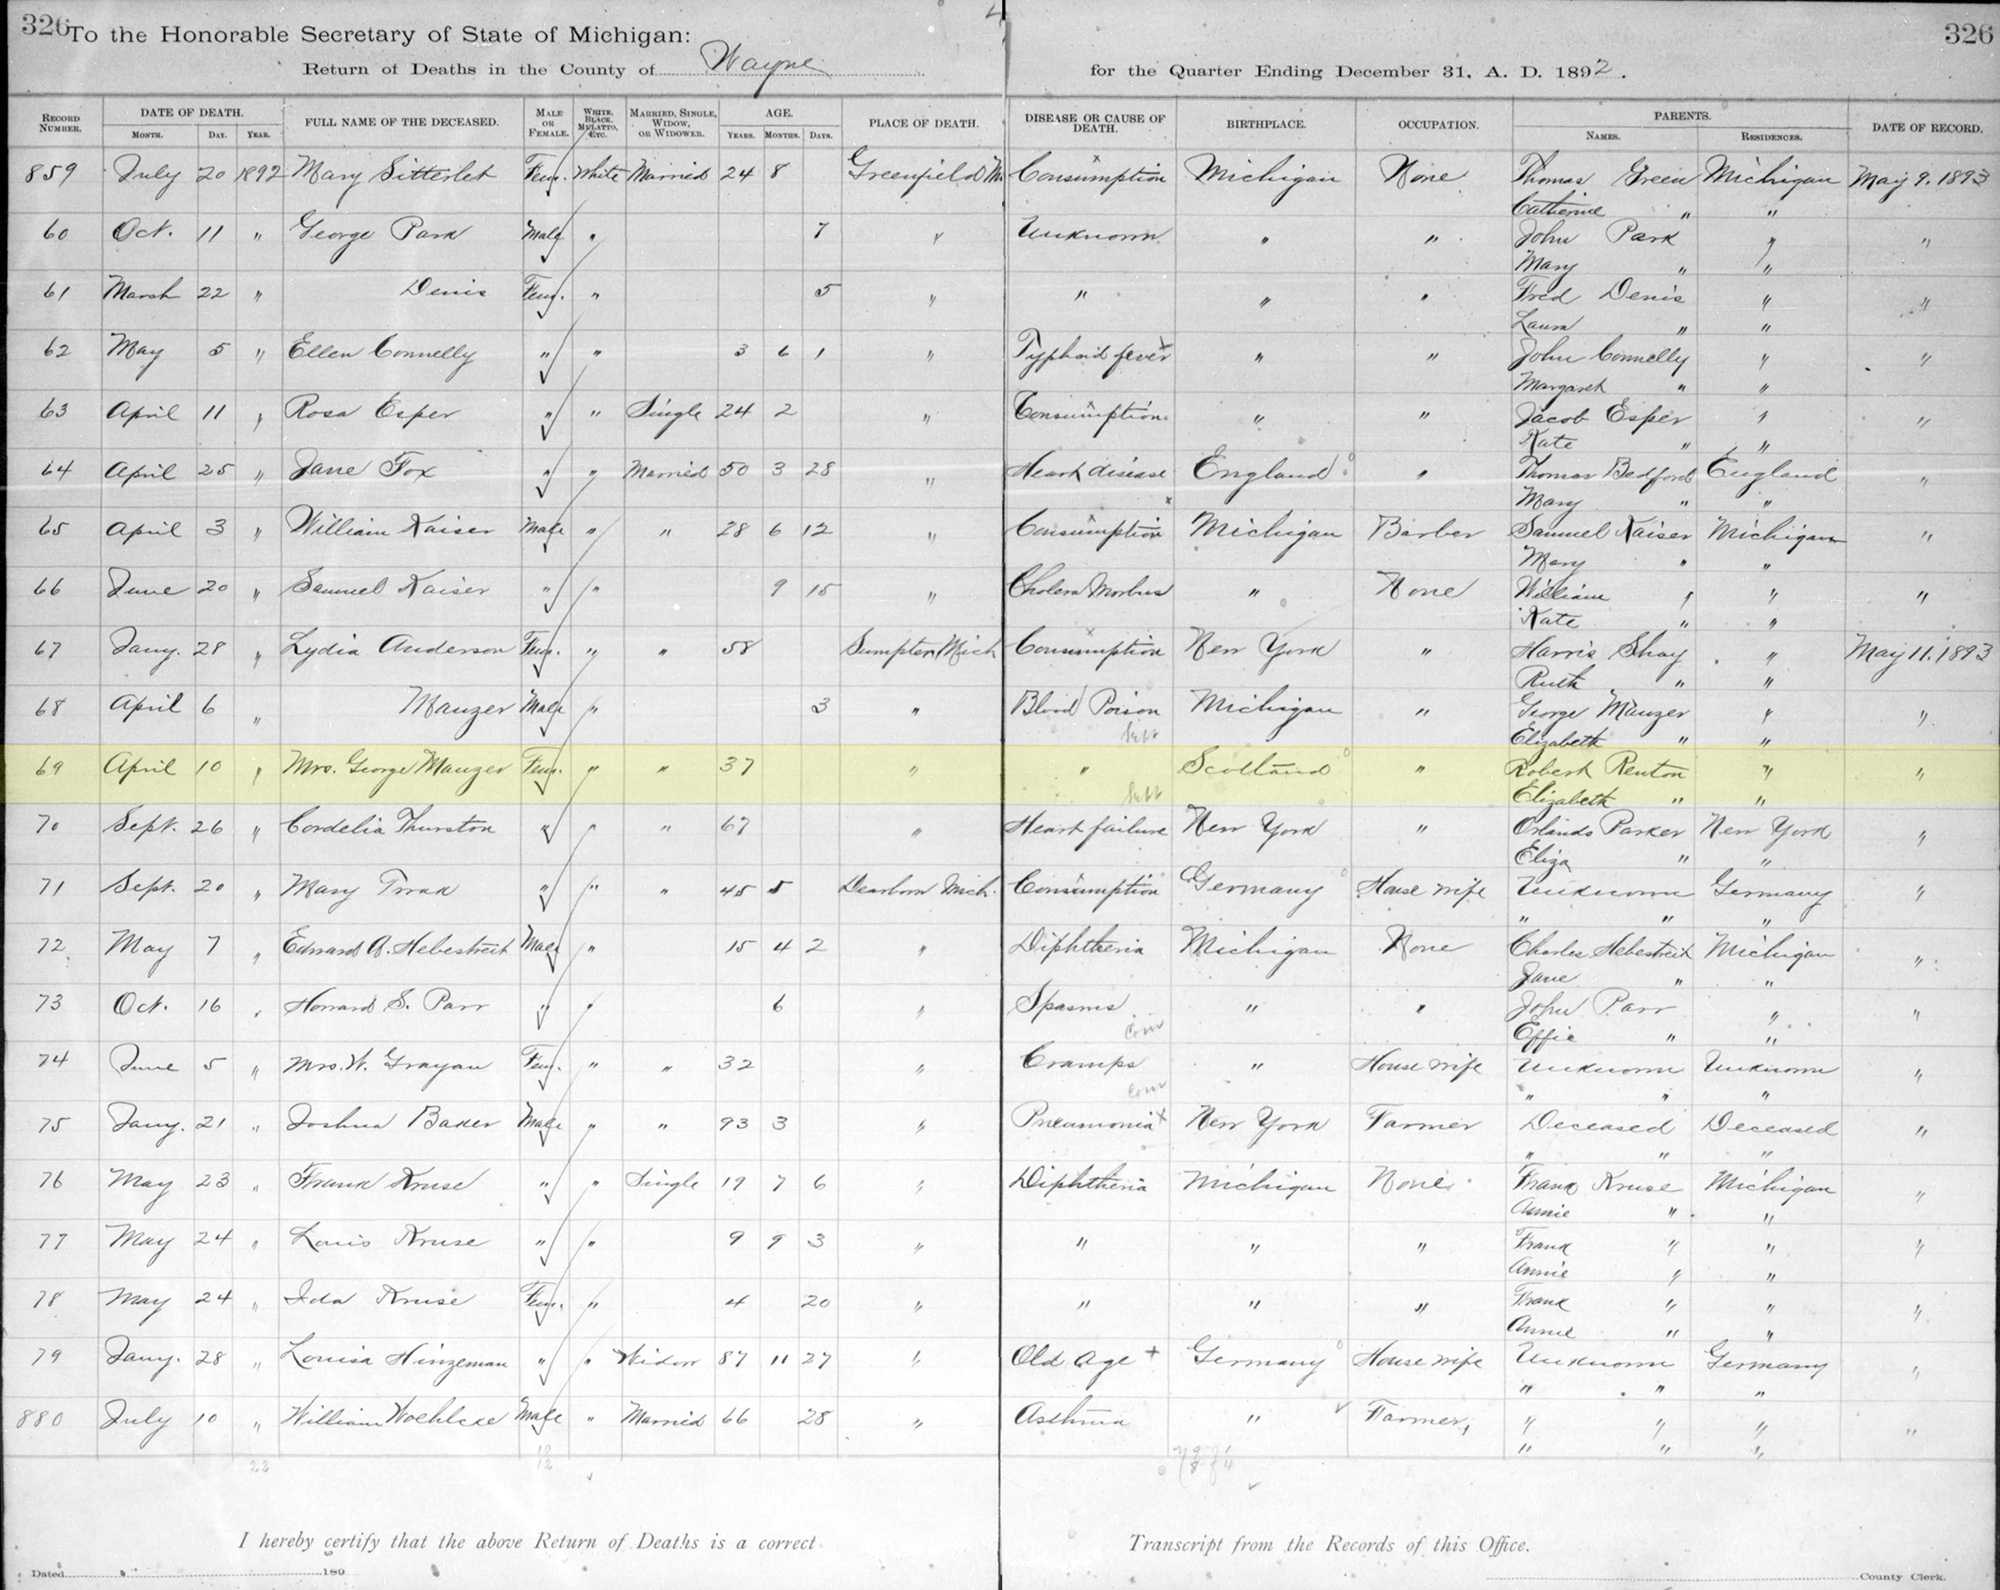 326 To the Honorable Secretary of State of Michigan: 326
Return of Deaths in the County of Wayne for the Quarter Ending December 31, A. D. 1892.
RECORD NUMBER. DATE OF DEATH. MONTH. DAY. YEAR. FULL NAME OF THE DECEASED. MALE OR FEMALE. WHITE, BLACK, MULATTO, ETC. MARRIED, SINGLE, WIDOW, OR WIDOWER. AGE. YEARS. MONTHS. DAYS. PLACE OF DEATH. DISEASE OR CAUSE OF DEATH. BIRTHPLACE. OCCUPATION. PARENTS. NAMES. RESIDENCES. DATE OF RECORD.
859 July 20 1892 Mary Sitterlet Fem. White Married 24 8 Greenfield Mi Consumption Michigan None Thomas Green Michigan May 9. 1893
Catherine " "
60 Oct. 11 " George Park Male " 7 " Unknown " " John Park " "
Mary " "
61 March 22 " Denis Fem. " 5 " " " " Fred Denis " "
Laura " "
62 May 5 " Ellen Connelly " " 3 6 1 " Typhoid fever " " John Connelly " "
Margaret " "
63 April 11 " Rosa Esper " " Single 24 2 " Consumption " " Jacob Esper " "
Kate " "
64 April 25 " Jane Fox " " Married 50 3 28 " Heart disease England " Thomas Bedford England "
Mary " "
65 April 3 " William Kaiser Male " " 28 6 12 " Consumption Michigan Barber Samuel Kaiser Michigan "
Mary " "
66 June 20 " Samuel Kaiser " " 9 15 " Cholera Morbus " None William " " "
Kate " "
67 Jany. 28 " Lydia Anderson Fem. " " 58 Sumpter Mich Consumption New York " Harris Shay " May 11. 1893
Ruth " "
68 April 6 " Mauzer Male " 3 " Blood Poison Michigan " George Mauzer " "
Sept Elizabeth " "
69 April 10 " Mrs. George Mauzer Fem. " " 37 " " Scotland " Robert Renton " "
Sept Elizabeth " "
70 Sept. 26 " Cordelia Thurston " " " 67 " Heart failure New York " Orlando Parker New York "
Eliza " "
71 Sept. 20 " Mary " " " 45 5 Dearborn Mich. Consumption Germany House wife Unknown Germany "
" " "
72 May 7 " Edward A. Hebestreit Male " 15 4 2 " Diphtheria Michigan None Charles Hebestreit Michigan "
Jane " "
73 Oct. 16 " Howard S. Parr " " 6 " Spasms " " John Parr " "
Con Effie " "
74 June 5 " Mrs. W. Grayan Fem. " " 32 " Cramps " House wife Unknown Unknown "
Con " " "
75 Jany. 21 " Joshua Baker Male " " 93 3 " Pneumonia New York Farmer Deceased Deceased "
" " "
76 May 23 " Frank Kruse " " Single 19 7 6 " Diphtheria Michigan None Frank Kruse Michigan "
Annie " "
77 May 24 " Louis Kruse " " 9 9 3 " " " " Frank " " "
Annie " "
78 May 24 " Ida Kruse Fem. " 4 20 " " " " Frank " " "
Annie " "
79 Jany. 28 " Louisa Hinzeman " " Widow 87 11 27 " Old Age Germany House wife Unknown Germany "
" " "
880 July 10 " William Woehlcke Male " Married 66 28 " Asthma " Farmer, " " " "
" " "
22 10
12
I hereby certify that the above Return of Deaths is a correct Transcript from the Records of this Office.
Dated 189 County Clerk.